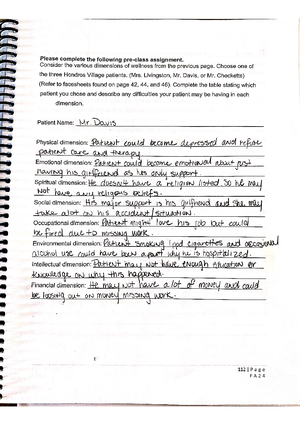 Please complete the following pre-class assignment.
Consider the various dimensions of wellness from the previous page. Choose one of
the three Hondros Village patients. (Mrs. Livingston, Mr. Davis, or Mr. Checketts)
(Refer to facesheets found on page 42, 44, and 46). Complete the table stating which
patient you chose and describe any difficulties your patient may be having in each
dimension.
Patient Name: Mr Davis
Physical dimension: Patient could become depressed and refuse
patient care and therapy.
Emotional dimension: Patient could become emotional about just
having his girlfriend as his only support.
Spiritual dimension: He doesn't have a religion listed. So he may
not have any religious beliefs.
Social dimension: His major support is his girlfriend and she may
take alot on his accident/situation.
Occupational dimension: Patient might love his job but could
be fired due to missing work.
Environmental dimension: Patient smoking 1pd cigarettes and occasional
alcohol use could have been apart why he is hospitalized.
Intellectual dimension: Patient may not have enough education or
knowledge on why this happened.
Financial dimension: He may not have a lot of money and could
be loosing out on money missing work.
112 | Page
FA24